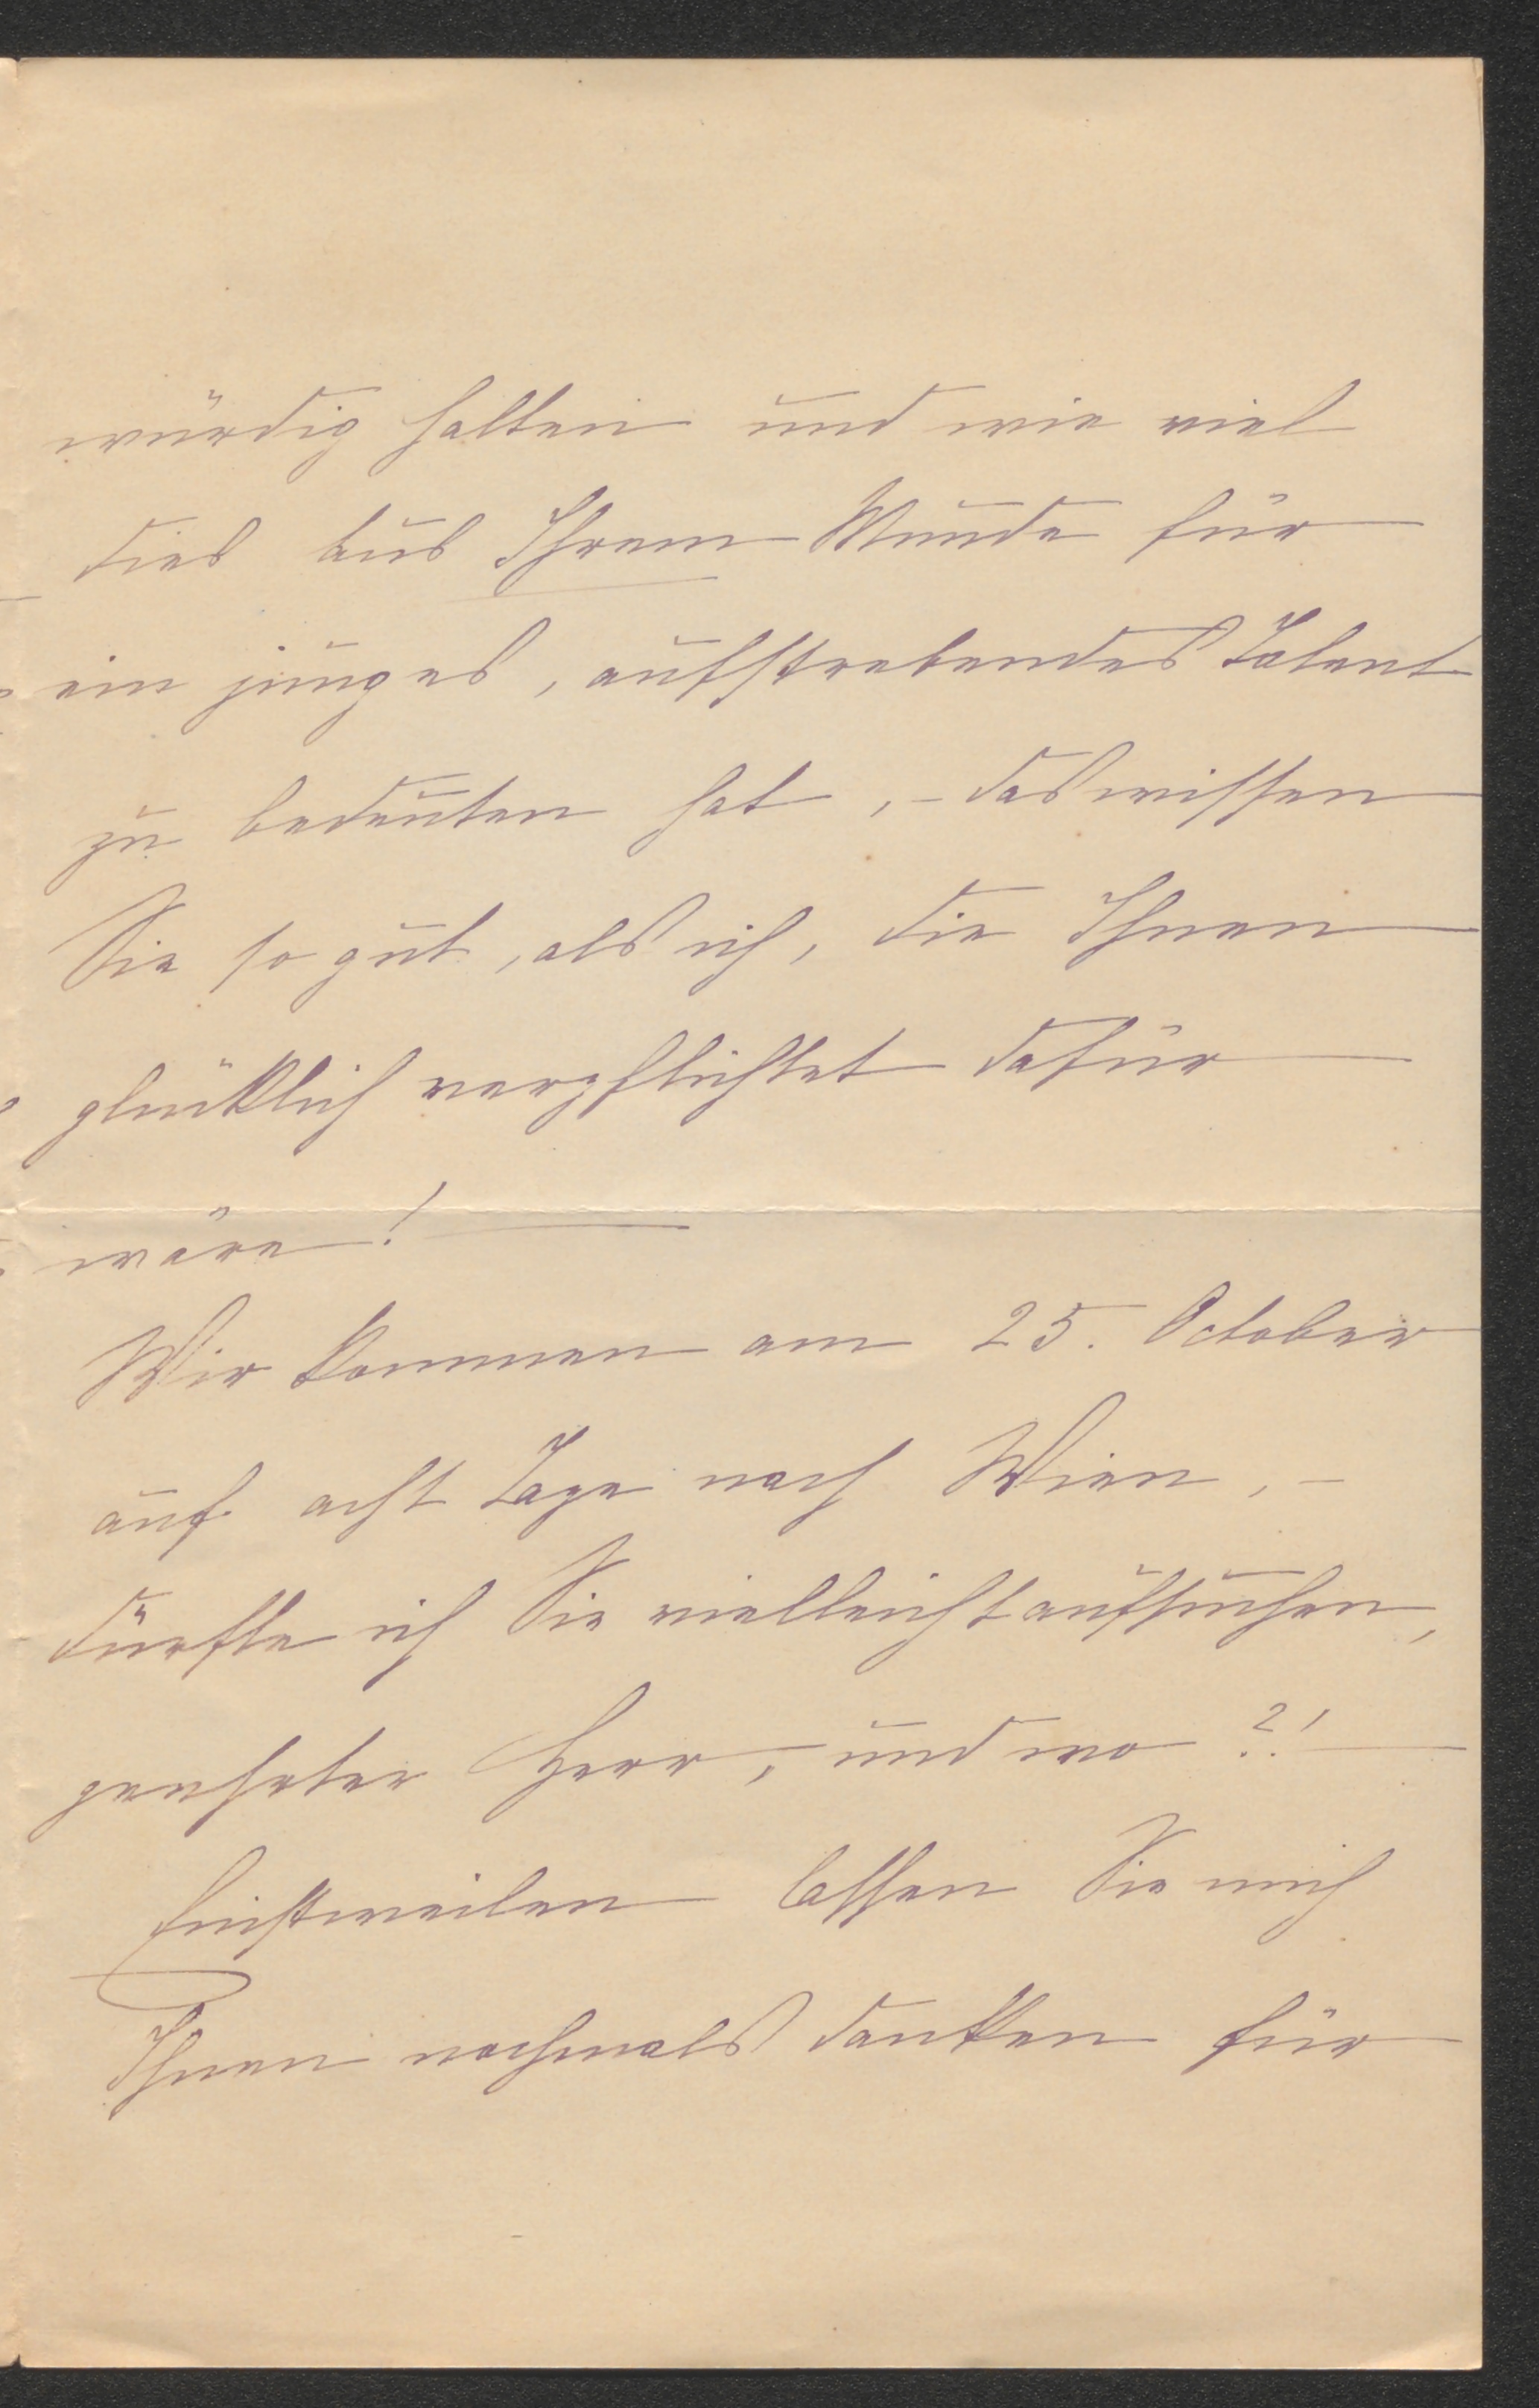 würdig halten und wie viel
dies aus Ihrem Munde für
ein junges, aufstrebendes Talent
zu bedeuten hat, – das wissen
Sie so gut, als ich, die Ihnen
glücklich verpflichtet dafür
wäre! —
Wir kommen am 25. October
auf acht Tage nach Wien, –
dürfte ich Sie vielleicht aufsuchen,
geehrter Herr, und wo?! —
Einstweilen lassen Sie mich
Ihnen nochmals danken für